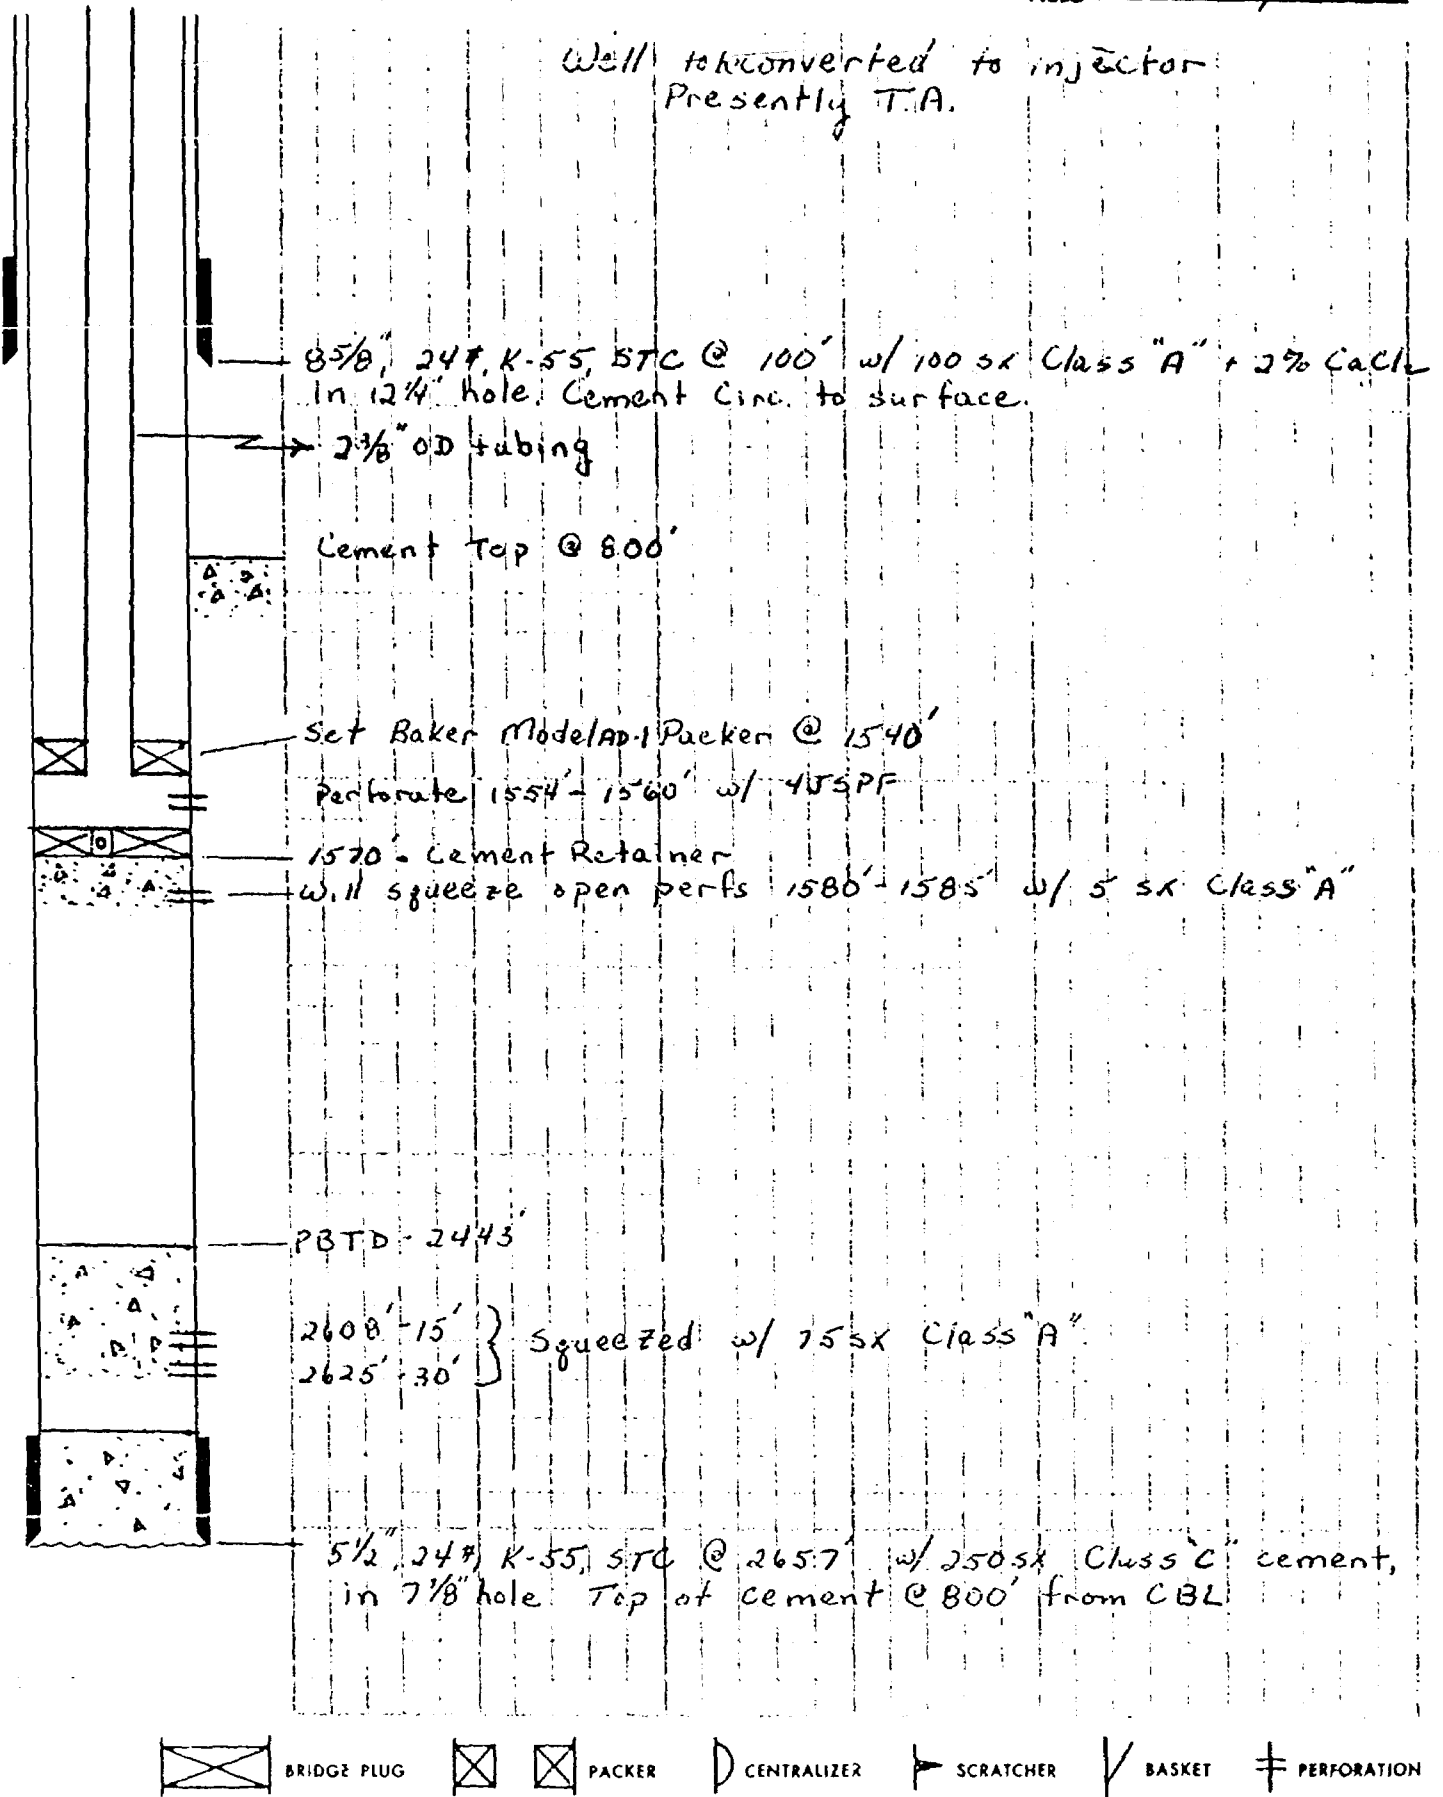 Well to be converted to injector
Presently T.A.
8 5/8", 24#, K-55, STC @ 100' w/ 100 sx Class "A" + 2% CaCl2
in 12 1/4" hole. Cement Circ. to surface.
2 3/8" OD tubing
Cement Top @ 800'
Set Baker Model AD-1 Packer @ 1540'
Perforate 1554'-1560' w/ 4JSPF
1570' - Cement Retainer
Will squeeze open perfs 1580'-1585' w/ 5 sx Class "A"
PBTD - 2443'
2608'-15' } Squeezed w/ 75 sx Class "A"
2625'-30'
5 1/2", 24#, K-55, STC @ 2657' w/ 250 sx Class "C" cement,
in 7 7/8" hole. Top of cement @ 800' from CBL
BRIDGE PLUG PACKER CENTRALIZER SCRATCHER BASKET PERFORATION